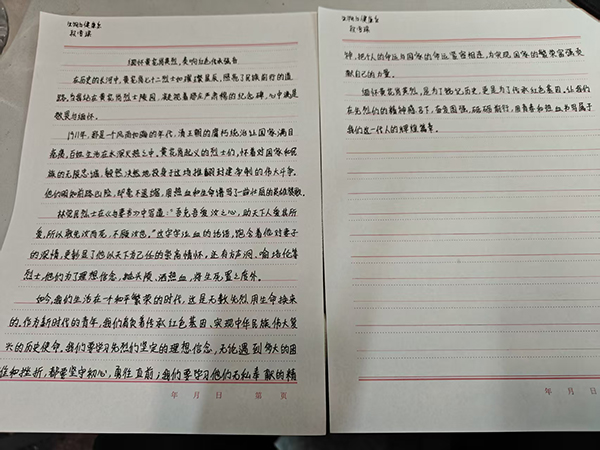 生物与健康系
段雪瑞
缅怀黄花岗英烈，奏响红色传承强音
在历史的长河中，黄花岗七十二烈士如璀璨星辰，照亮了民族前行的道
路。当我站在黄花岗烈士陵园，凝视着那庄严肃穆的纪念碑，心中满是
敬畏与缅怀。
1911年，那是个风雨如晦的年代，清王朝的腐朽统治让国家满目
疮痍，百姓生活在水深火热之中。黄花岗起义的烈士们，怀着对国家和民
族的无限忠诚，毅然决然地投身于这场推翻封建帝制的伟大斗争。
他们明知前路凶险，却毫不退缩，用热血和生命谱写了一曲壮丽的英雄赞歌。
林觉民烈士在《与妻书》中写道："吾充吾爱汝之心，助天下人爱其所
爱，所以敢先汝而死，不顾汝也。"这字字泣血的话语，饱含着他对妻子
的深情，更彰显了他以天下为己任的崇高情怀，还有方声洞、喻培伦等
烈士，他们为了理想信念，抛头颅、洒热血，将生死置之度外。
如今，我们生活在一个和平繁荣的时代，这是无数先烈用生命换来
的。作为新时代的青年，我们肩负着传承红色基因、实现中华民族伟大复
兴的历史使命。我们要学习先烈们坚定的理想信念，无论遇到多大的困
难和挫折，都要坚守初心，勇往直前；我们要学习他们无私奉献的精
年 月 日 第 页
生物与健康系
段雪瑞
神，把个人的命运与国家的命运紧密相连，为实现国家的繁荣富强贡
献自己的力量。
缅怀黄花岗英烈，是为了铭记历史，更是为了传承红色基因。让我们
在先烈们的精神感召下，奋发图强，砥砺前行，用青春和热血书写属于
我们这一代人的辉煌篇章。
年 月 日